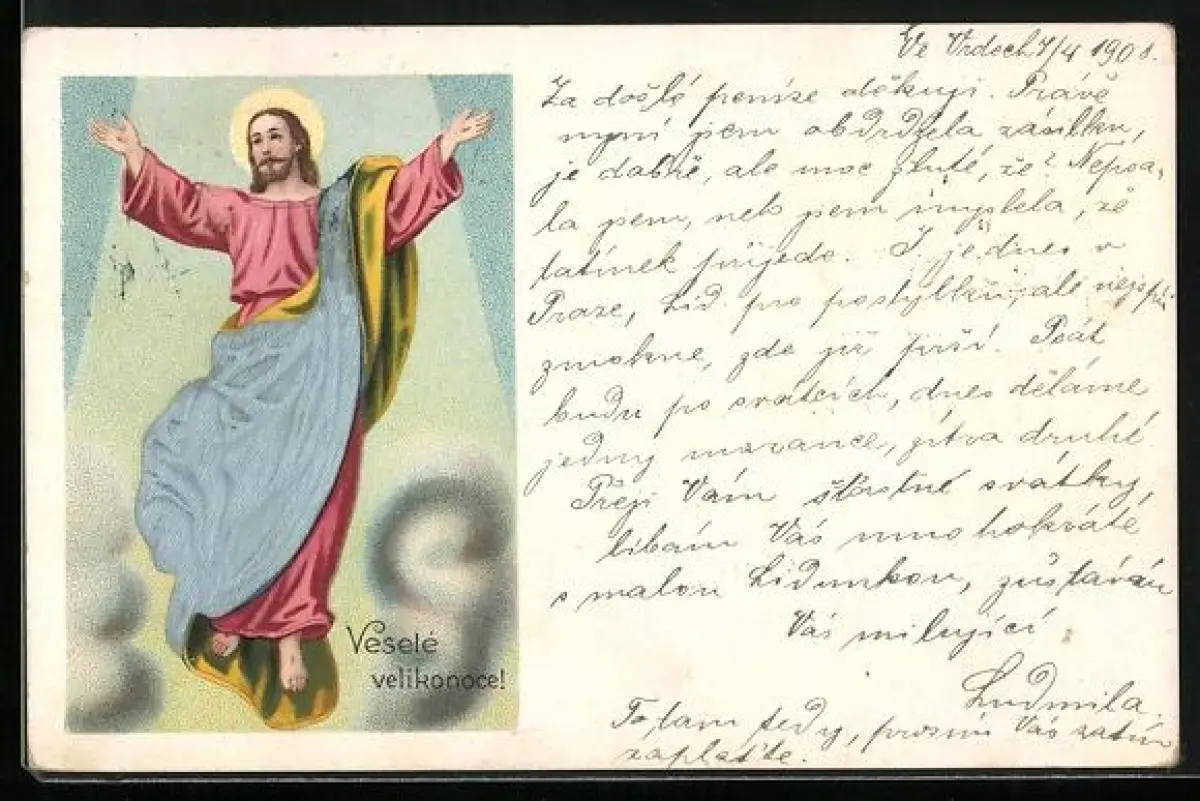 Ve Vrdech 7/4 1901.
Za došlé peníze děkuji. Právě
nyní jsem obdržela zásilku,
je dobře, ale moc žluté, že? Nepsa-
la jsem, neb jsem myslela, že
tatínek přijede. J. je dnes v
Praze, Lid. pro postýlku, ale nejspíš
zmokne, zde již prší. Psát
budu po svátcích, dnes děláme
jedny mazance, zítra druhé.
Přeji Vám šťastné svátky,
líbám Vás mnohokráte
s malou Lidunkou, zůstávám
Vás milující
Ludmila.
To tam tedy, prosím Vás zatím
zaplaťte.
Veselé
velikonoce!